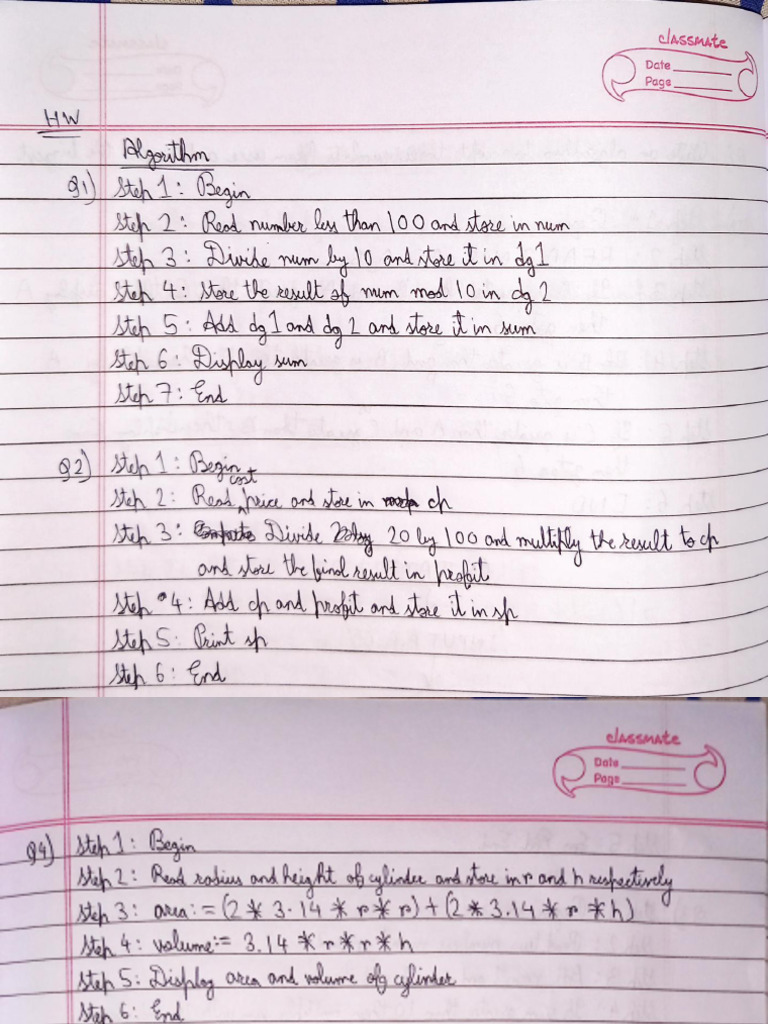 classmate
Date
Page
HW
Algorithm
Q1) Step 1: Begin
Step 2: Read number less than 100 and store in num
Step 3: Divide num by 10 and store it in dg1
Step 4: Store the result of num mod 10 in dg2
Step 5: Add dg1 and dg2 and store it in sum
Step 6: Display sum
Step 7: End
Q2) Step 1: Begin
Step 2: Read cost price and store in cp
Step 3: Divide 20 by 100 and multiply the result to cp
and store the final result in profit
Step 4: Add cp and profit and store it in sp
Step 5: Print sp
Step 6: End
classmate
Date
Page
Q4) Step 1: Begin
Step 2: Read radius and height of cylinder and store in r and h respectively
Step 3: area:=(2*3.14*r*r)+(2*3.14*r*h)
Step 4: volume:= 3.14*r*r*h
Step 5: Display area and volume of cylinder
Step 6: End